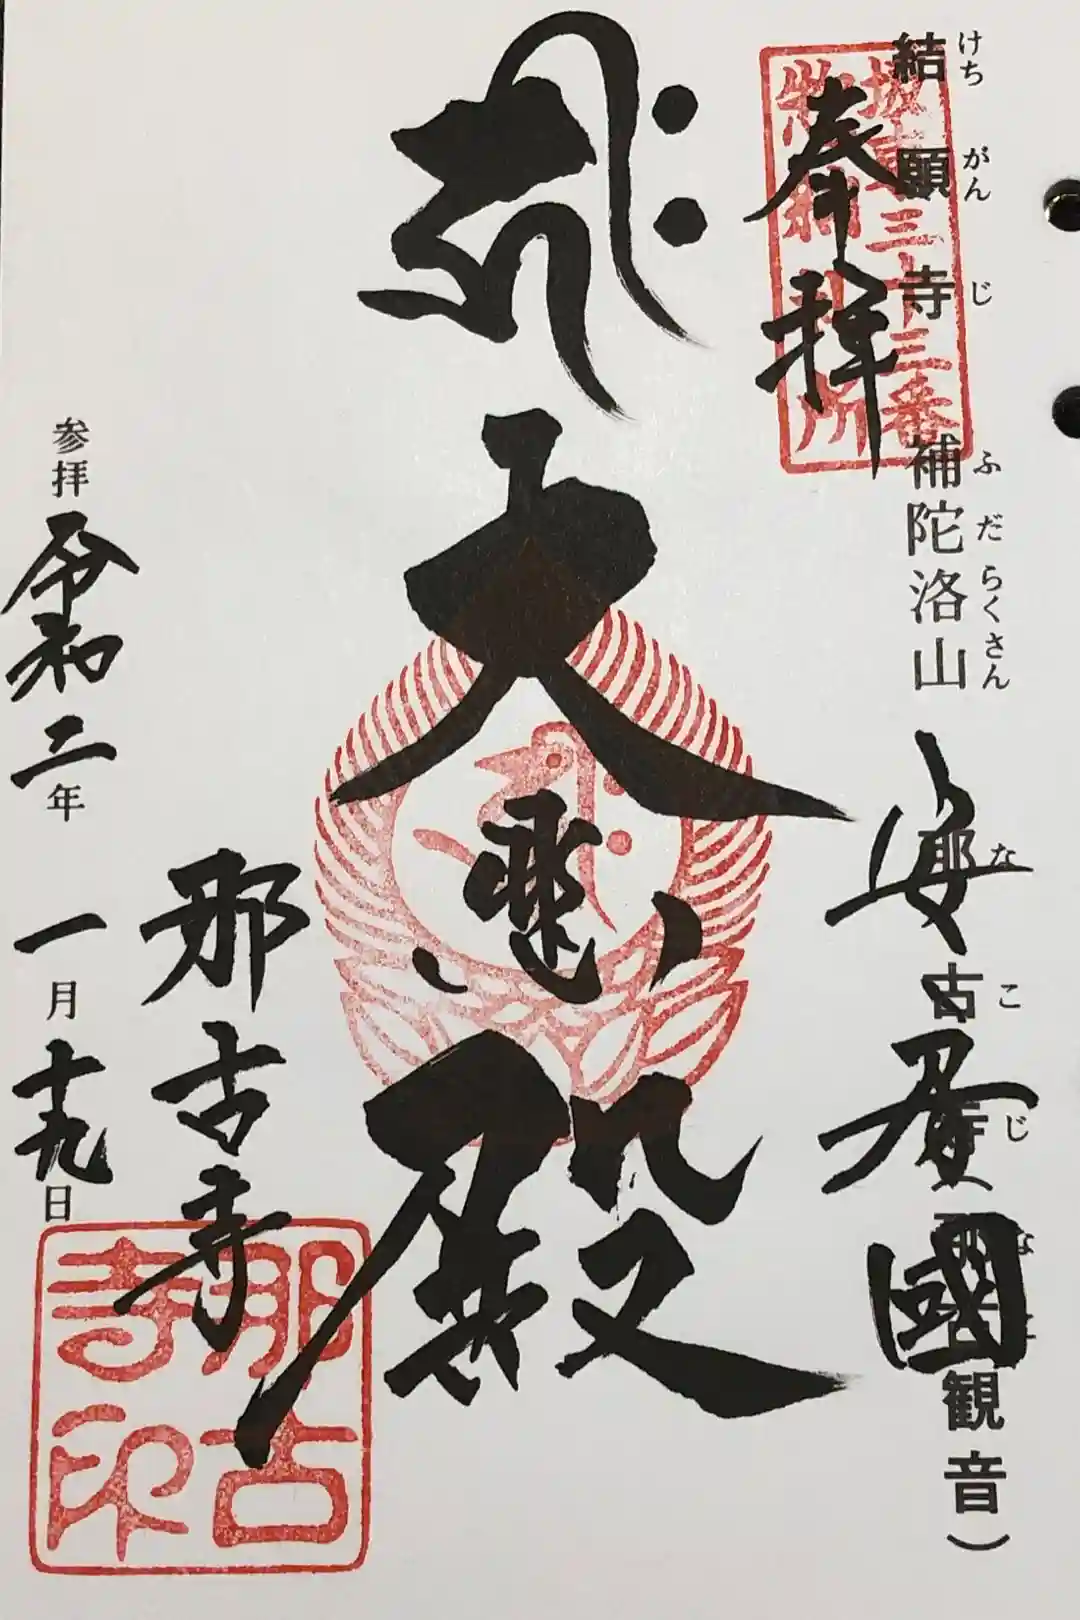 結願寺 補陀洛山 那古寺(那古観音)
けちがんじ ふだらくさん なこじ な
坂東三十三番
納札所
奉拝
安房國
大悲殿
那古寺
那古寺印
参拝 令和二年 一月十九日